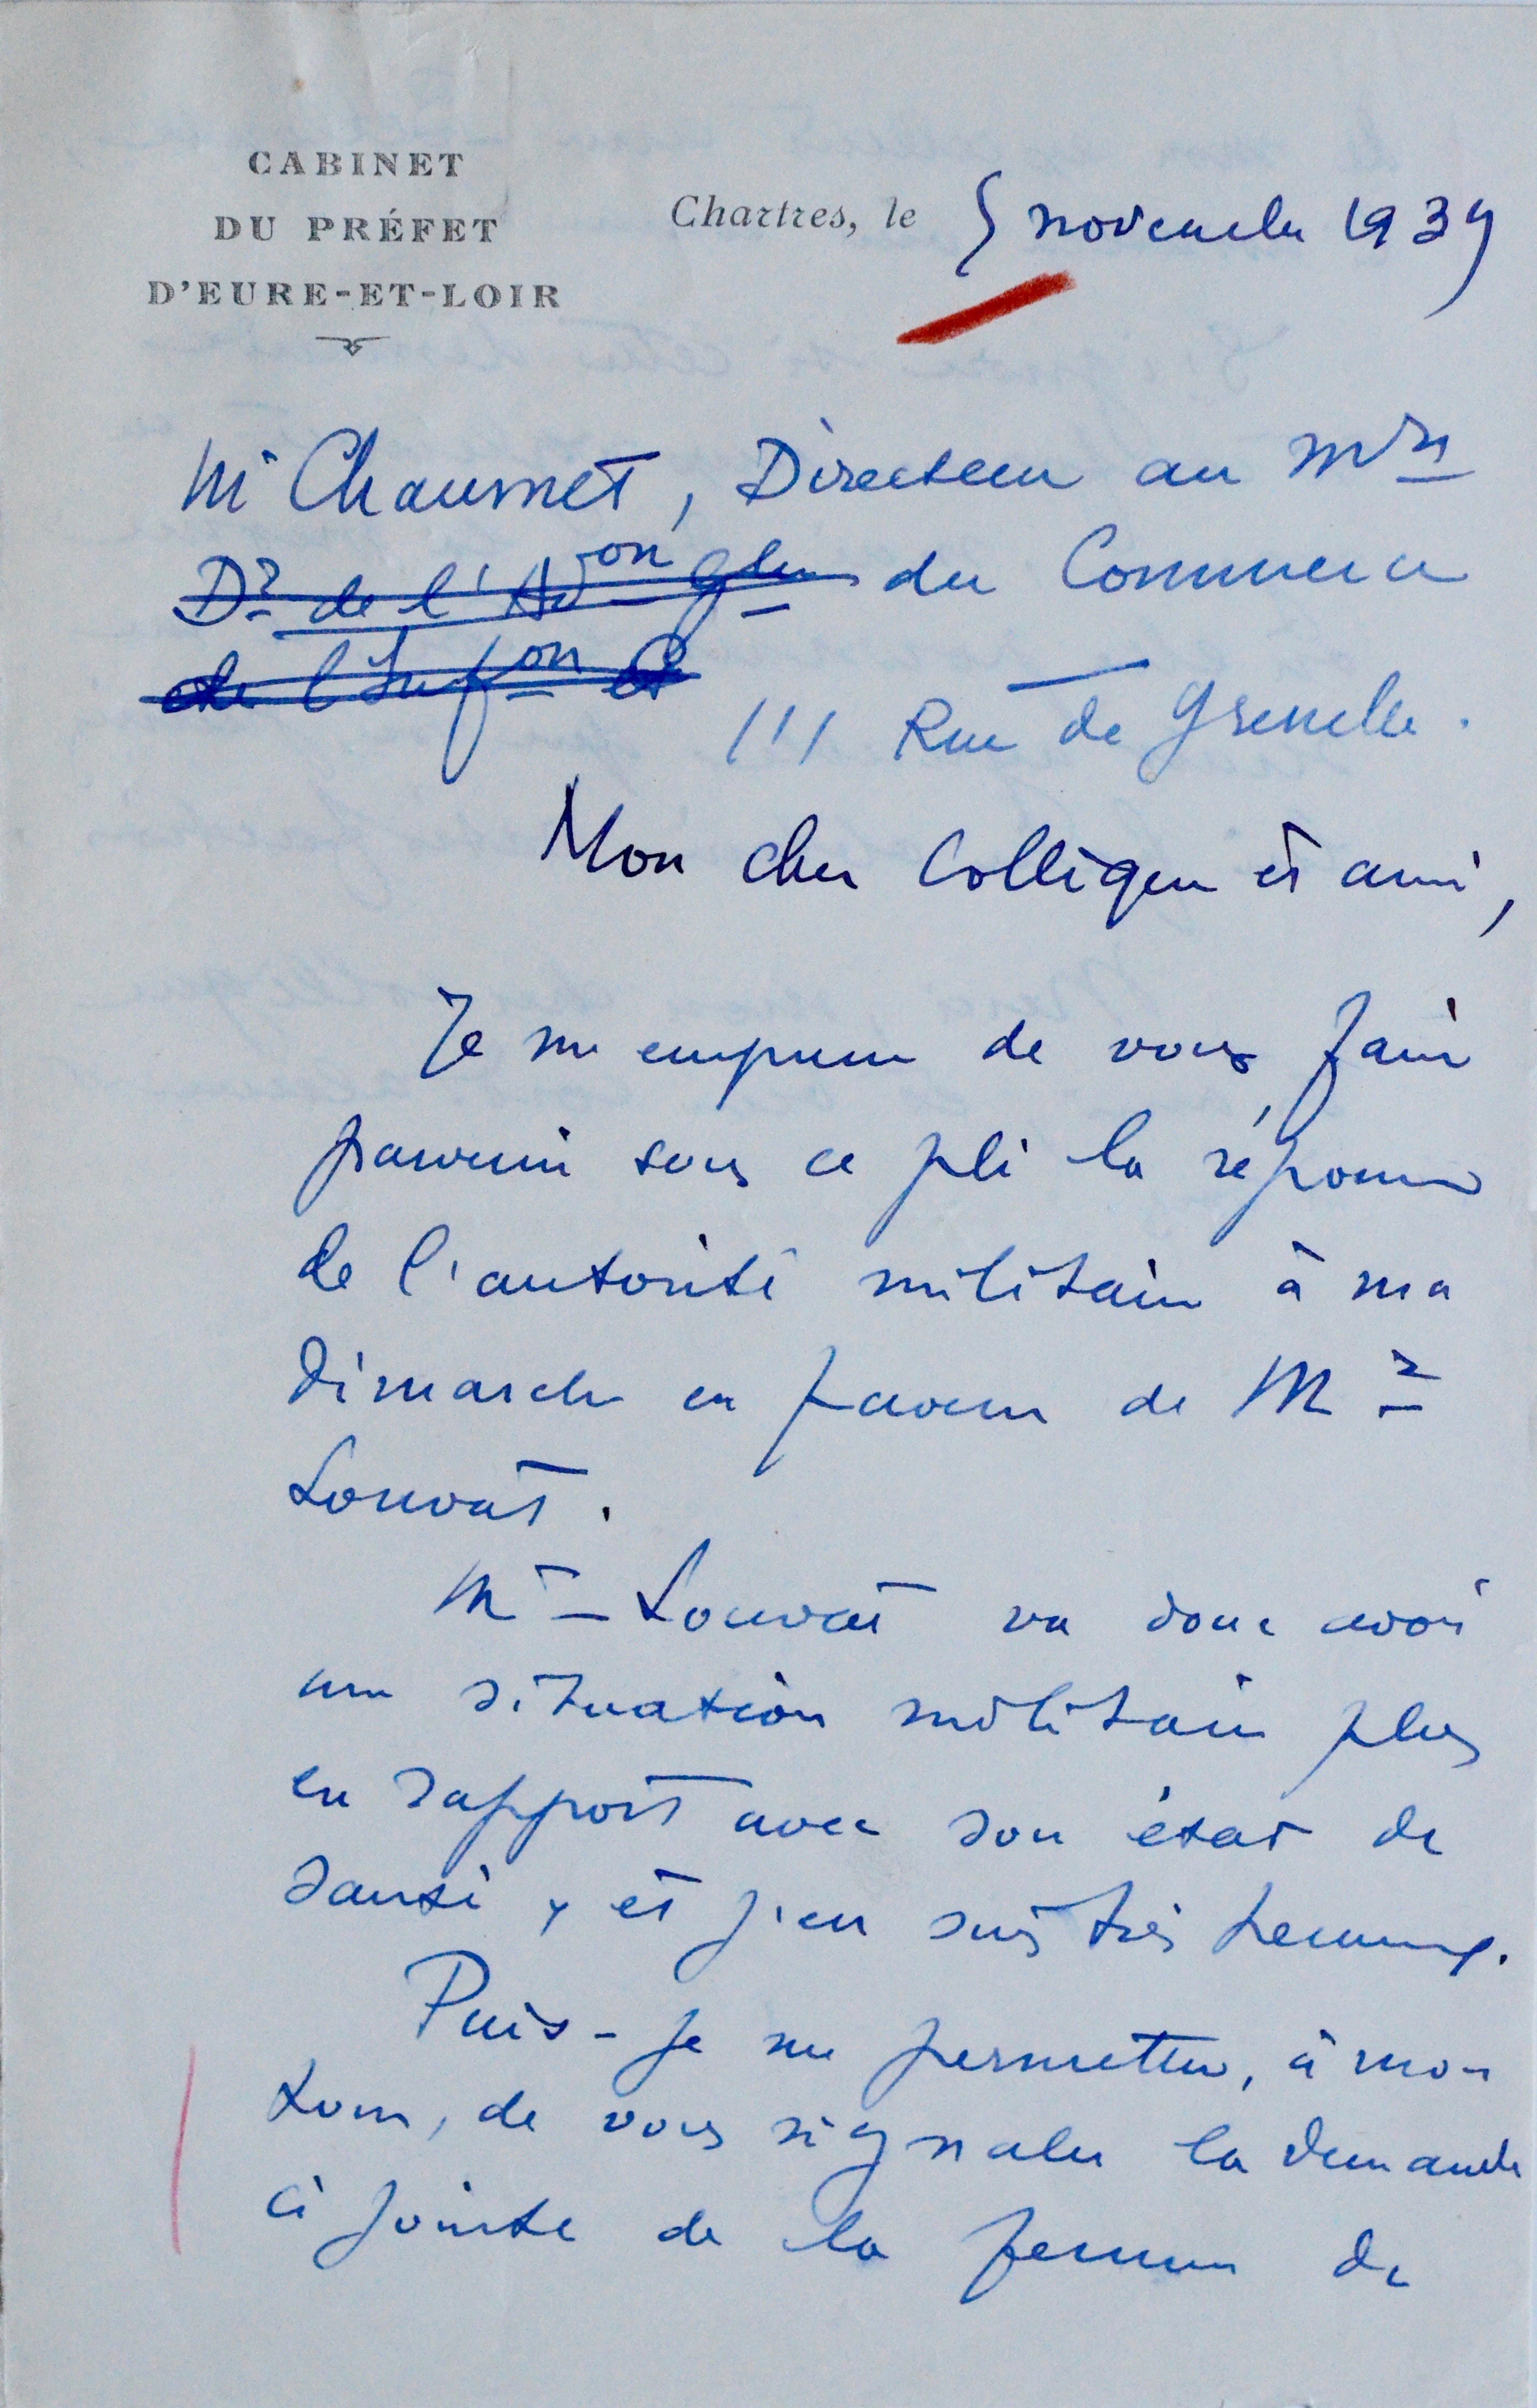 CABINET
DU PRÉFET
D'EURE-ET-LOIR
Chartres, le 5 novembre 1939
Mr Chaumet, Directeur au Mre
Dr de l'Adon gle du Commerce
de l'Infon et
111 Rue de Grenelle.
Mon cher Collègue et ami,
Je me empresse de vous faire
parvenir sous ce pli la réponse
de l'autorité militaire à ma
démarche en faveur de Mr
Louvat.
Mr Louvat va donc avoir
une situation militaire plus
en rapport avec son état de
santé, et j'en suis très heureux.
Puis-je me permettre, à mon
tour, de vous signaler la demande
ci jointe de la femme de